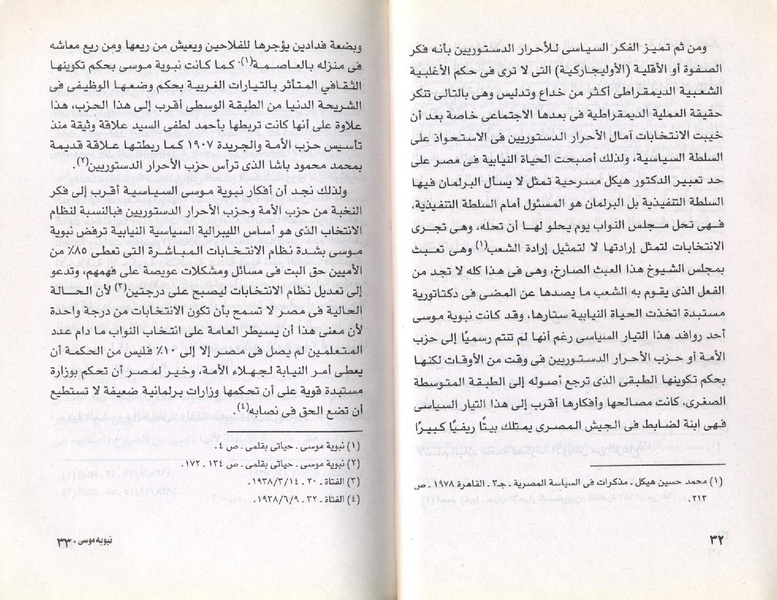 ومن ثم تميز الفكر السياسى للأحرار الدستوريين بأنه فكر
الصفوة أو الأقلية (الأوليجاركية) التى لا ترى فى حكم الأغلبية
الشعبية الديمقراطى أكثر من خداع وتدليس وهى بالتالى تتكر
حقيقة العملية الديمقراطية فى بعدها الاجتماعى خاصة بعد أن
خيبت الانتخابات آمال الأحرار الدستوريين فى الاستحواذ على
السلطة السياسية، ولذلك أصبحت الحياة النيابية فى مصر على
حد تعبير الدكتور هيكل مسرحية تمثل لا يسأل البرلمان فيها
السلطة التنفيذية بل البرلمان هو المسئول أمام السلطة التنفيذية،
فهى تحل مجلس النواب يوم يحلو لهـا أن تحله، وهى تجـرى
الانتخابات لتمثل إرادتها لا لتمثيل إرادة الشعب(١) وهى تعبث
بمجلس الشيوخ هذا العبث الصارخ، وهى فى هذا كله لا تجد من
الفعل الذى يقوم به الشعب ما يصدها عن المضى فى دكتاتورية
مستبدة اتخذت الحياة النيابية ستارها، وقد كانت نبوية موسى
أحد روافد هذا التيار السياسى رغم أنها لم تنتم رسميًا إلى حزب
الأمة أو حزب الأحرار الدستوريين فى وقت من الأوقات لكنها
بحكم تكوينها الطبقى الذى ترجع أصوله إلى الطبقة المتوسطة
الصغرى، كانت مصالحها وأفكارها أقرب إلى هذا التيار السياسى
فهى ابنة لضابط فى الجيش المصرى يمتلك بيتًا ريفيًا كبيرًا
(١) محمد حسين هيكل ـ مذكرات فى السياسة المصرية ـ جـ٣ ـ القاهرة ١٩٧٨ ـ ص
٢١٣ .
٣٢
وبضعة فدادين يؤجرها للفلاحين ويعيش من ريعها ومن ريع معاشه
فى منزله بالعاصـمة(١). كما كانت نبوية موسى بحكم تكوينها
الثقافي المتأثر بالتيارات الغربية بحكم وضعها الوظيفى فى
الشريحة الدنيا من الطبقة الوسطى أقرب إلى هذا الحزب، هذا
علاوة على أنها كانت تربطها بأحمد لطفى السيد علاقة وثيقة منذ
تأسيس حزب الأمة والجريدة ١٩٠٧ كما ربطتها علاقة قديمة
بمحمد محمود باشا الذى ترأس حزب الأحرار الدستوريين(٢).
ولذلك نجد أن أفكار نبوية موسى السياسية أقرب إلى فكر
النخبة من حزب الأمة وحزب الأحرار الدستوريين فبالنسبة لنظام
الانتخاب الذى هو أساس الليبرالية السياسية النيابية ترفض نبوية
موسى بشدة نظام الانتخابات المباشرة التى تعطى ٨٥٪ من
الأميين حق البت فى مسائل ومشكلات عويصة على فهمهم، وتدعو
إلى تعديل نظام الانتخابات ليصبح على درجتين(٣) لأن الحـالة
الحالية فى مصر لا تسمح بأن تكون الانتخابات من درجة واحدة
لأن معنى هذا أن يسيطر العامة على انتخاب النواب ما دام عدد
المتعلمين لم يصل فى مصر إلا إلى ١٠٪ فليس من الحكمة أن
يعطى أمر النيابة لجهلاء الأمة، وخير لمصر أن تحكم بوزارة
مستبدة قوية على أن تحكمها وزارات برلمانية ضعيفة لا تستطيع
أن تضع الحق فى نصابه(٤).
(١) نبوية موسى ـ حياتى بقلمى ـ ص ٤.
(٢) نبوية موسى ـ حياتى بقلمى ـ ص ١٣٤ ـ ١٧٢.
(٣) الفتاة ـ ٢٠ ـ ١٩٣٨/٣/١٤.
(٤) الفتاة ـ ٣٢ ـ ١٩٣٨/٦/٩.
نبوية موسى ـ ٣٣